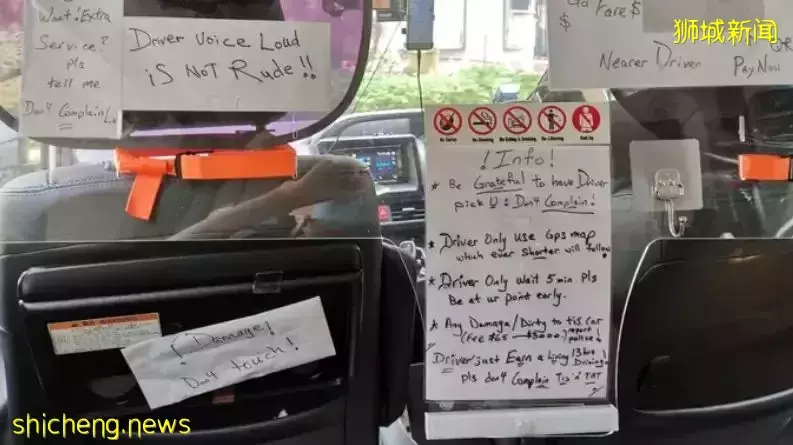 Want! Extra
Service?
pls
tell me
Don't Complain!.
Driver Voice Loud
is Not Rude!!
Fare $
$
Nearer Driver
QR
PayNow
狮城新闻
No Durian
No Smoking
No Eating & Drinking
No Littering
Belt Up
! Info!
* Be Grateful to have Driver
pick U! Don't Complain!
* Driver Only Use GPS map
which ever Shorter will follow
* Driver Only Wait 5 min. Pls
Be at ur point early.
* Any Damage/Dirty to tis Car
(Fee $65 — $3000) report
police!
Driver Just Earn a Living 13 hrs
Driving!
pls don't Complain Tis n' TAT
WARNING
! Damage!
Don't touch!
shicheng.news